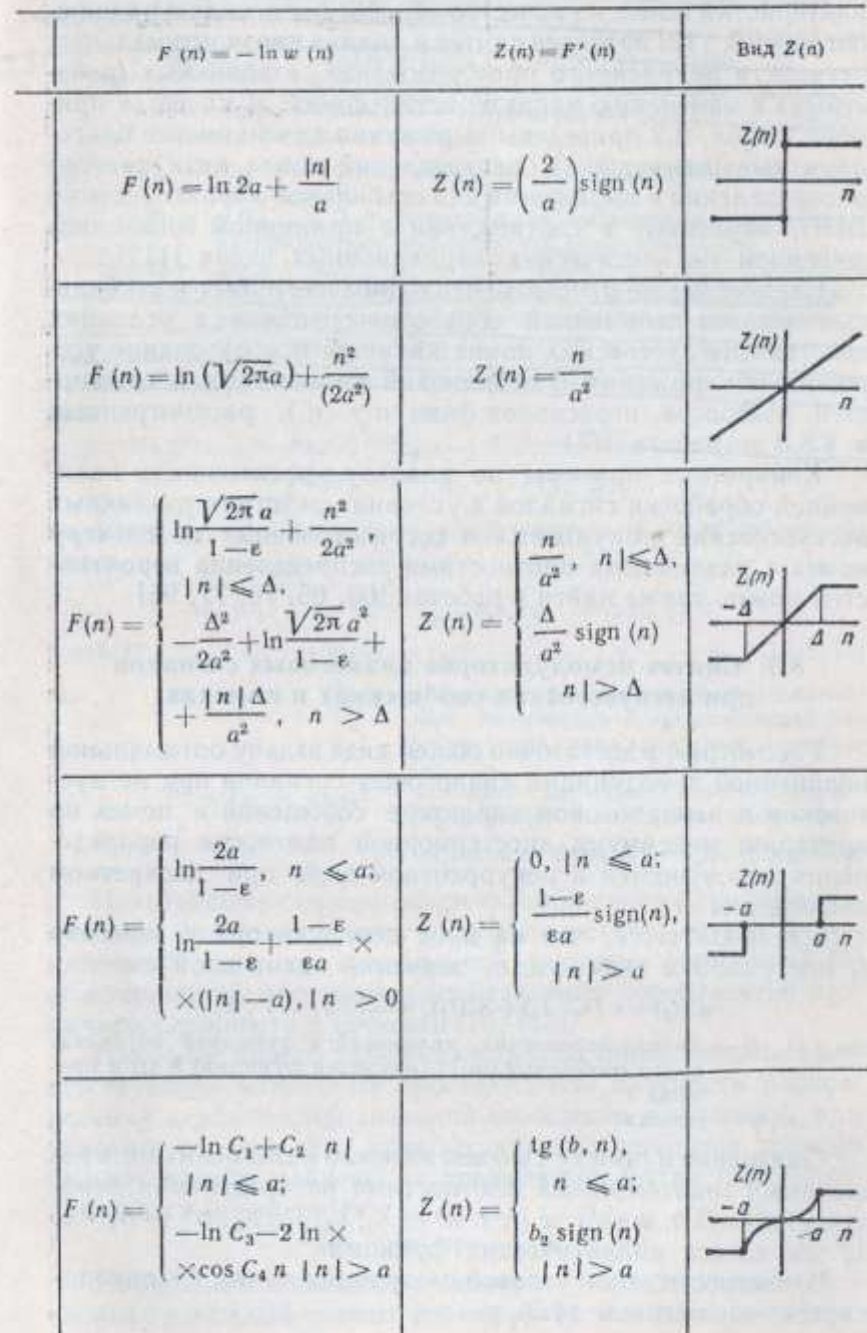 F (n) = − ln w (n)
Z(n) = F' (n)
Вид Z(n)
F (n) = ln 2a + |n|/a
Z (n) = (2/a) sign (n)
Z(n)
n
F (n) = ln (√2πa) + n²/(2a²)
Z (n) = n/a²
Z(n)
n
F(n) = { ln √2π a/(1−ε) + n²/2a²,
|n| ⩽ Δ;
−Δ²/2a² + ln √2π a²/(1−ε) +
+ |n|Δ/a², n > Δ
Z (n) = { n/a², n| ⩽ Δ,
Δ/a² sign (n)
n| > Δ
Z(n)
−Δ
Δ n
F(n) = { ln 2a/(1−ε), n ⩽ a;
ln 2a/(1−ε) + (1−ε)/εa ×
×(|n|−a), |n > 0
Z (n) = { 0, |n ⩽ a;
(1−ε)/εa sign(n),
|n| > a
Z(n)
−a
a n
F (n) = { −ln C₁+C₂ n|
|n| ⩽ a;
−ln C₃−2 ln ×
×cos C₄ n |n| > a
Z (n) = { tg (b, n),
n ⩽ a;
b₂ sign (n)
|n| > a
Z(n)
−a
a n